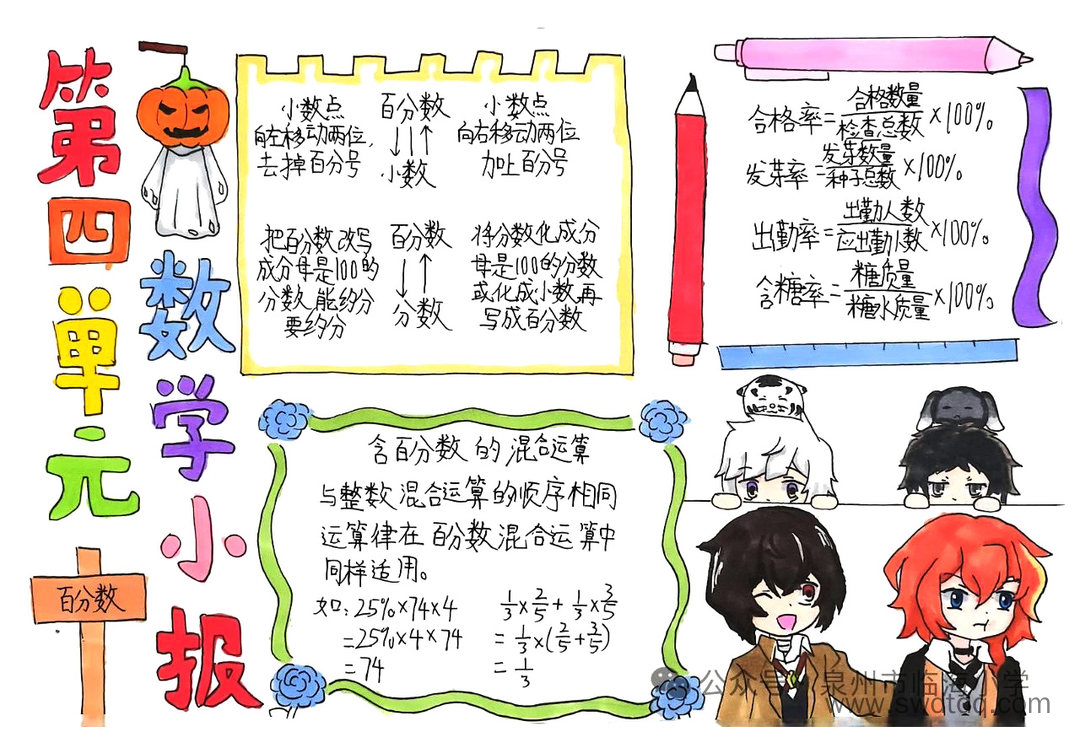 第四单元
数学小报
百分数
小数点
向左移动两位,
去掉百分号
百分数
↓↓↑
小数
小数点
向右移动两位
加上百分号
把百分数改写
成分母是100的
分数,能约分
要约分
百分数
↓↑
分数
将分数化成分
母是100的分数
或化成小数,再
写成百分数
合格率=合格数量/检查总数×100%。
发芽率=发芽数量/种子总数×100%。
出勤率=出勤人数/应出勤人数×100%。
含糖率=糖质量/糖水质量×100%。
含百分数的混合运算
与整数混合运算的顺序相同
运算律在百分数混合运算中
同样适用。
如:25%×74×4
=25%×4×74
=74
1/3×2/5+1/3×3/5
=1/3×(2/5+3/5)
=1/3
公众号 泉州市临海小学
www.swdtqq.com